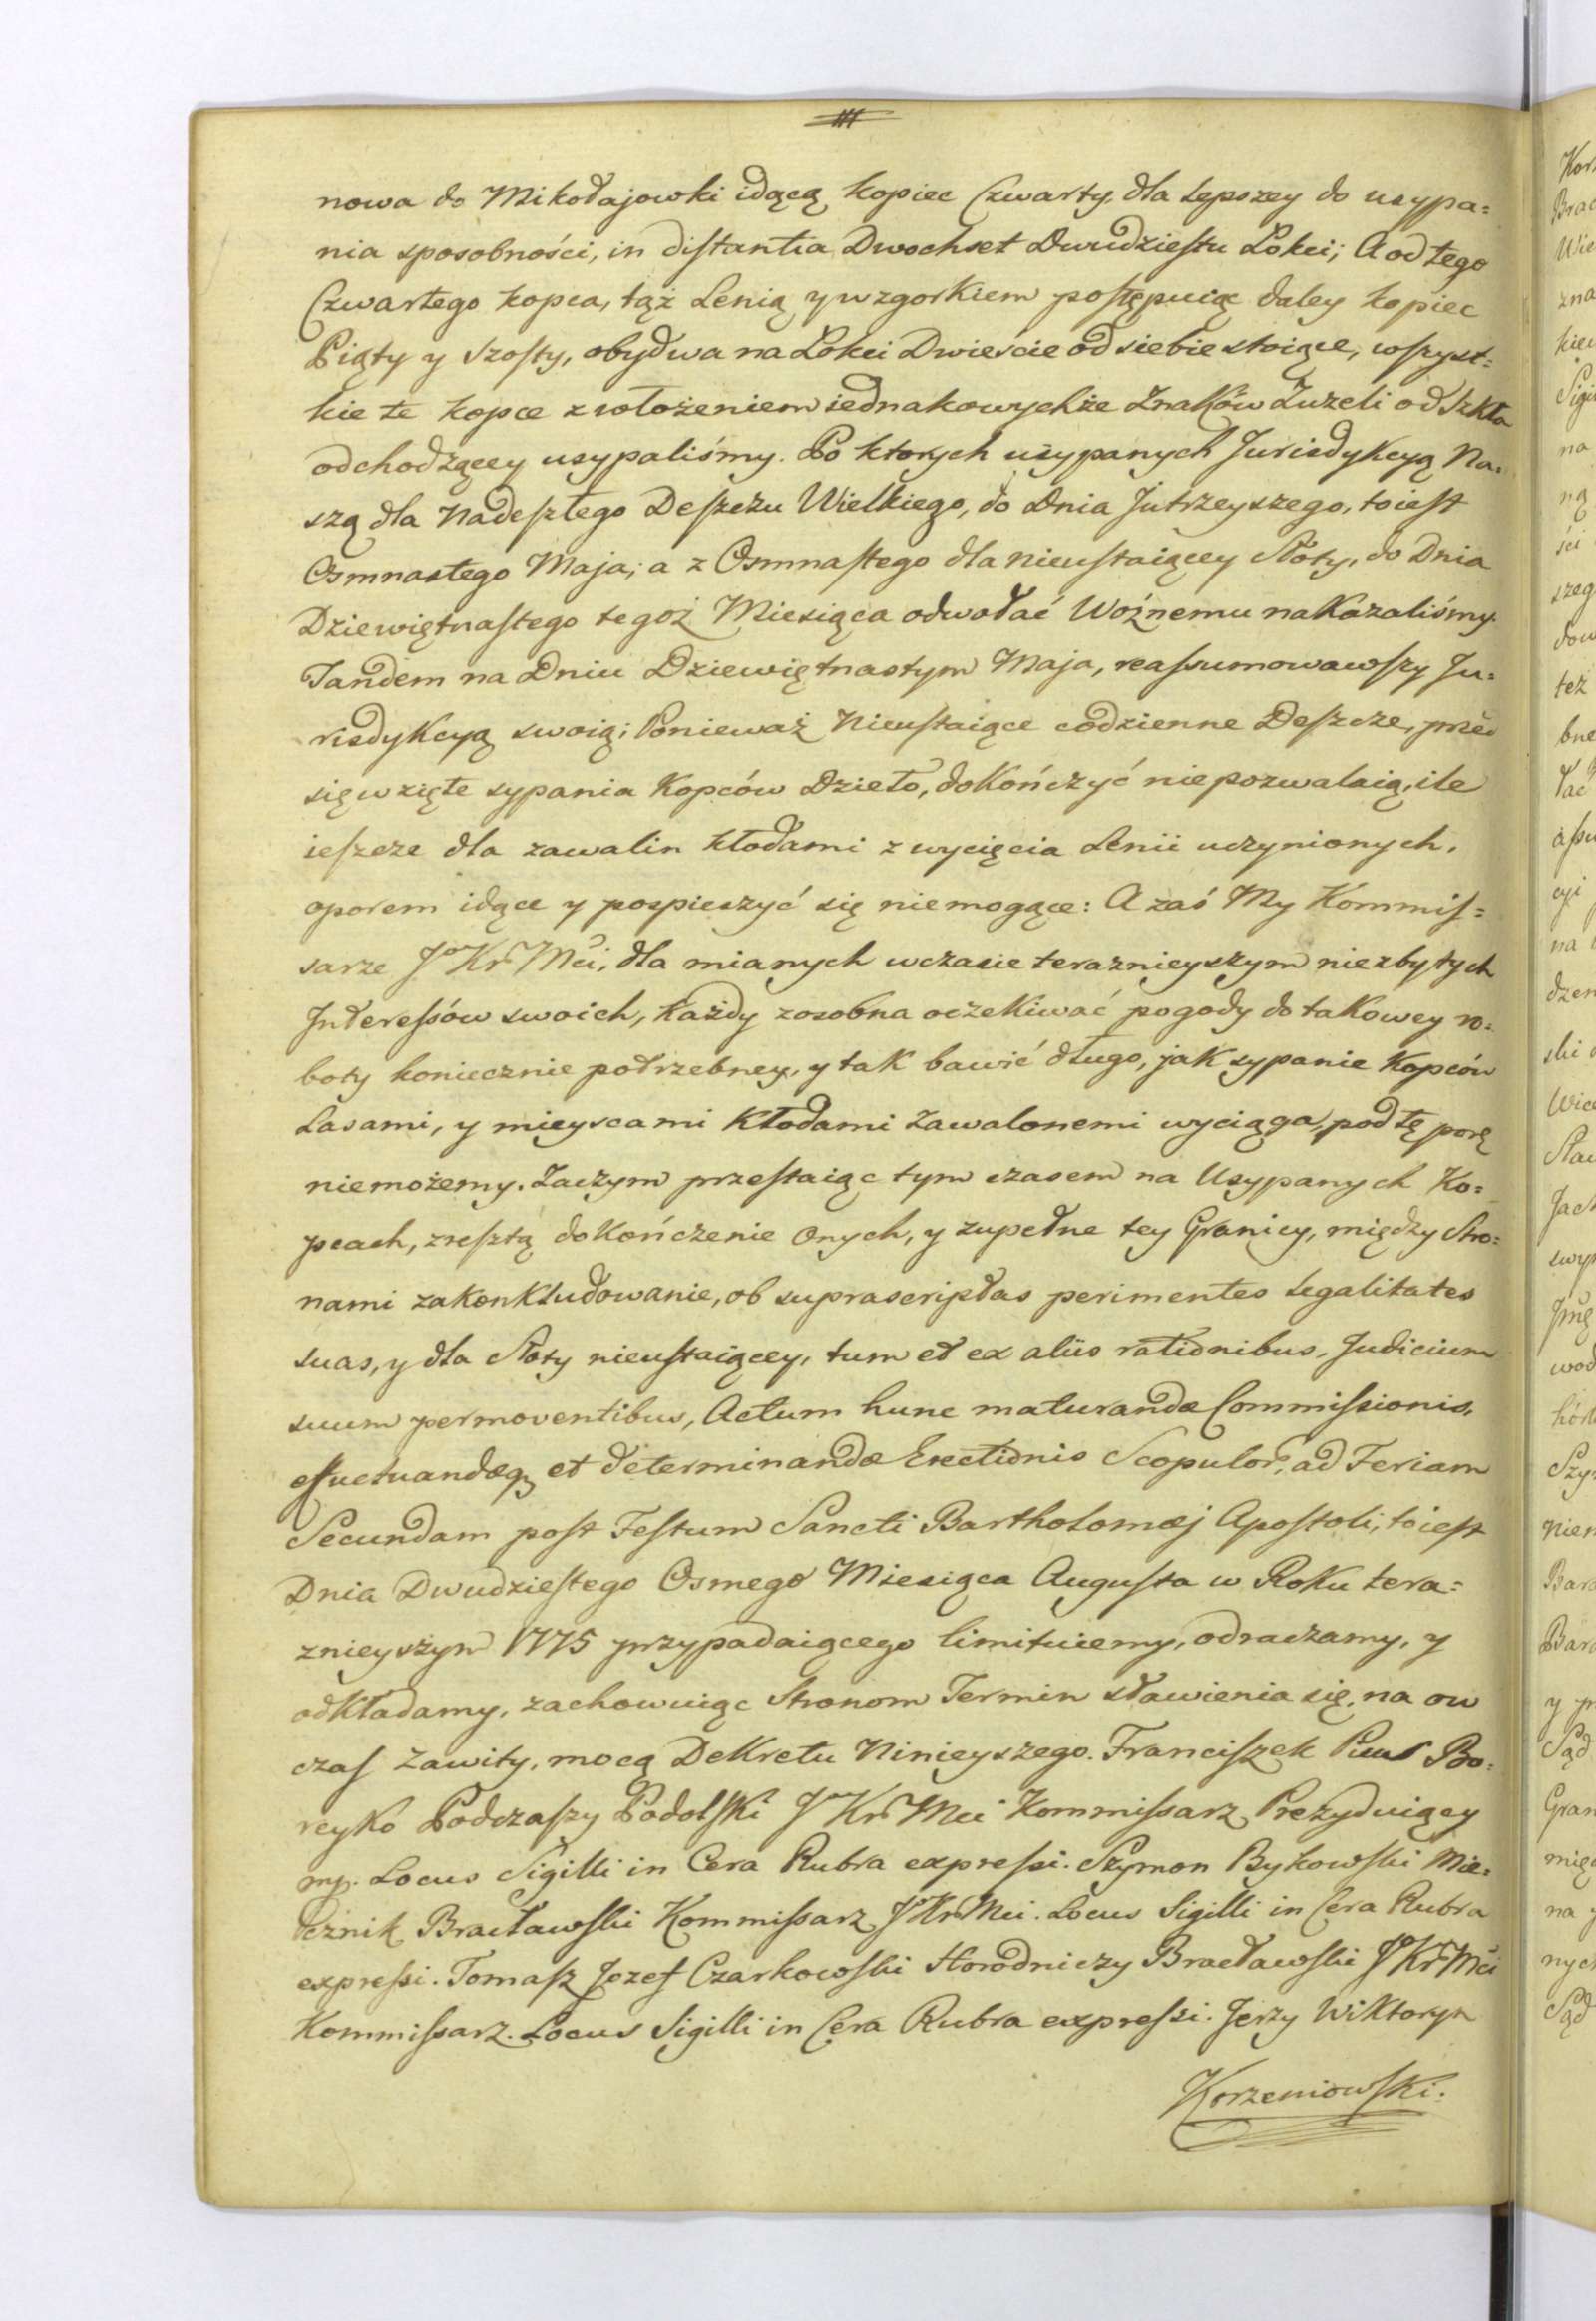 nowa do Mikołajowki idącą kopiec Czwarty, dla lepszey do usypa=
nia sposobności, in distantia Dwochset Dwudziestu Łokci; A od tego
Czwartego kopca, tąż Lenią y wzgorkiem postępuiąc daley kopiec
Piąty y Szosty, obydwa na Łokci Dwieście od siebie stoiące, wszyst=
kie te kopce z włożeniem iednakowychże Znaków Zużeli od Szkła
odchodzącey usypaliśmy. Po ktorych usypanych Jurisdykcyą Na=
szą dla Nadeszłego Deszczu Wielkiego, do Dnia Jutrzeyszego, toiest
Osmnastego Maja; a z Osmnastego dla nieustaiącey Słoty, do Dnia
Dziewiętnastego tegoż Miesiąca odwołać Woźnemu nakazaliśmy.
Tandem na Dniu Dziewiętnastym Maja, reassumowawszy Ju=
risdykcyą swoią; Ponieważ Nieustaiące codzienne Deszcze, przed
sięwzięte sypania Kopców Dzieło, dokończyć niepozwalaią, ile
ieszcze dla zawalin kłodami z wycięcia Lenii uczynionych,
oporem idące y pospieszyć się niemogące: A zaś My Kommis=
sarze Jo Kr Mci, dla mianych wczasie teraznieyszym niezbytych
Interessów swoich, każdy zosobna oczekiwać pogody do takowey ro=
boty koniecznie potrzebney, y tak bawić długo, jak sypanie Kopców
Lasami, y mieyscami Kłodami zawalonemi wyciąga, pod tę porę
niemożemy. Zaczym przestaiąc tym czasem na Usypanych Ko=
pcach, zresztą dokończenie onych, y zupełne tey Granicy, między Stro=
nami zakonkludowanie, ob suprascriptas perimentes legalitates
suas, y dla Słoty nieustaiącey, tum et ex aliis rationibus, Judicium
suum permoventibus, Actum hunc maturandæ Commissionis,
effectuandæq3 et determinandæ Erectionis Scopulor, ad Feriam
Secundam post Festum Sancti Bartholomæj Apostoli, toiest
Dnia Dwudziestego Osmego Miesiąca Augusta w Roku tera=
znieyszym 1775 przypadaiącego limituiemy, odraczamy, y
odkładamy, zachowuiąc Stronom Termin stawienia się, na ow
czas Zawity, mocą Dekretu Ninieyszego. Franciszek Pius Bo=
reyko Podczaszy Podolski Jo Kr Mci Kommissarz Prezyduiący
mp. Locus Sigilli in Cera Rubra expressi. Szymon Bykowski Mie=
cznik Bracławski Kommissarz Jo Kr Mci. Locus Sigilli in Cera Rubra
expressi. Tomasz Jozef Czarkowski Horodniczy Bracławski Jo Kr Mci
Kommissarz. Locus Sigilli in Cera Rubra expressi. Jerzy Wiktoryn
Korzeniowski.